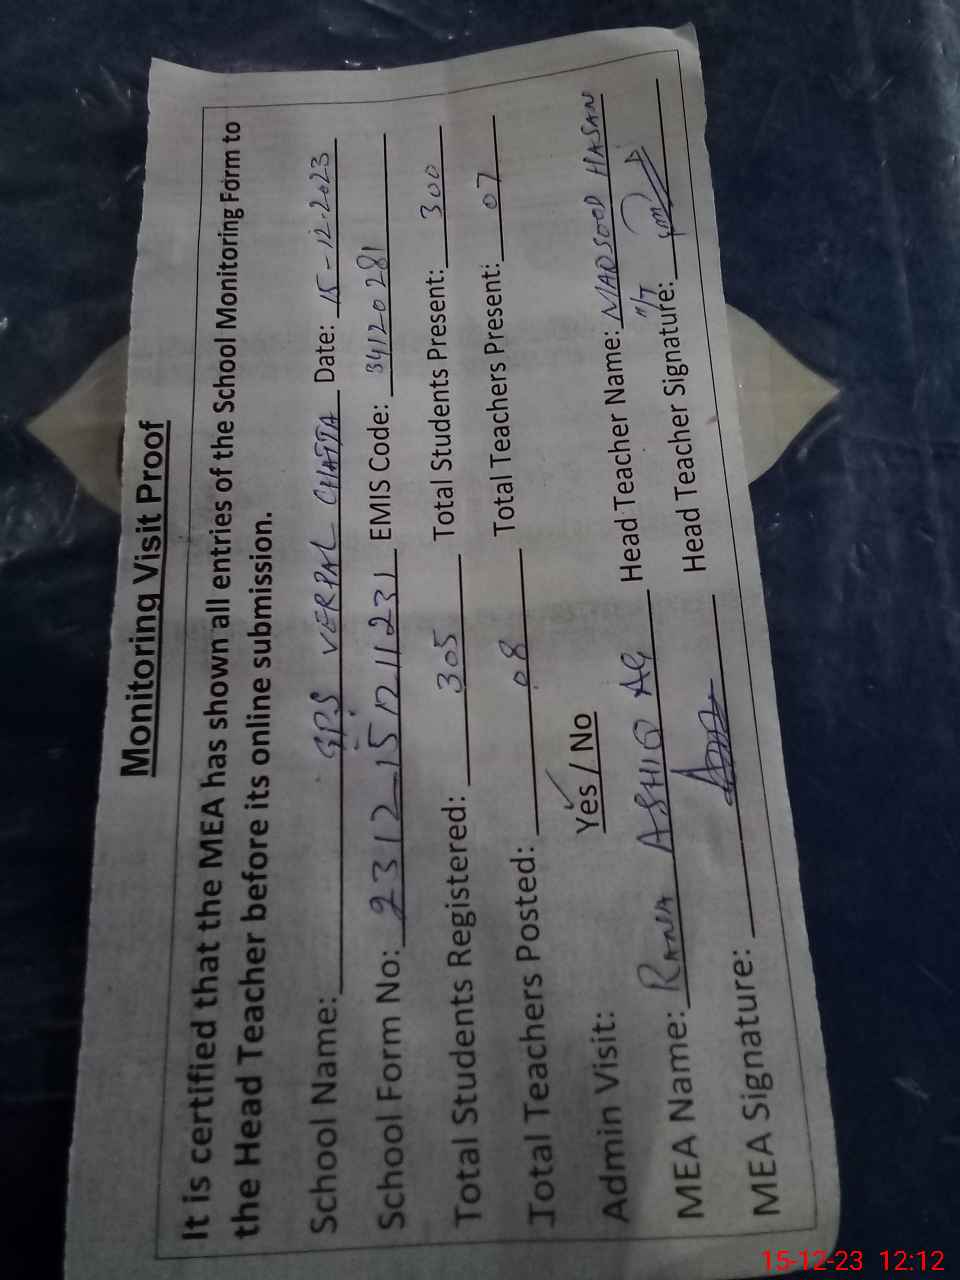 Monitoring Visit Proof
It is certified that the MEA has shown all entries of the School Monitoring Form to
the Head Teacher before its online submission.
School Name: GPS VERPAL CHATTA Date: 15-12-2023
School Form No: 2312-15121123 EMIS Code: 34120281
Total Students Registered: 305 Total Students Present: 300
Total Teachers Posted: 08 Total Teachers Present: 07
Admin Visit: Yes / No
MEA Name: RANA ASHIQ Ali Head Teacher Name: MAQSOOD HASAN
MEA Signature: Head Teacher Signature:
15-12-23 12:12